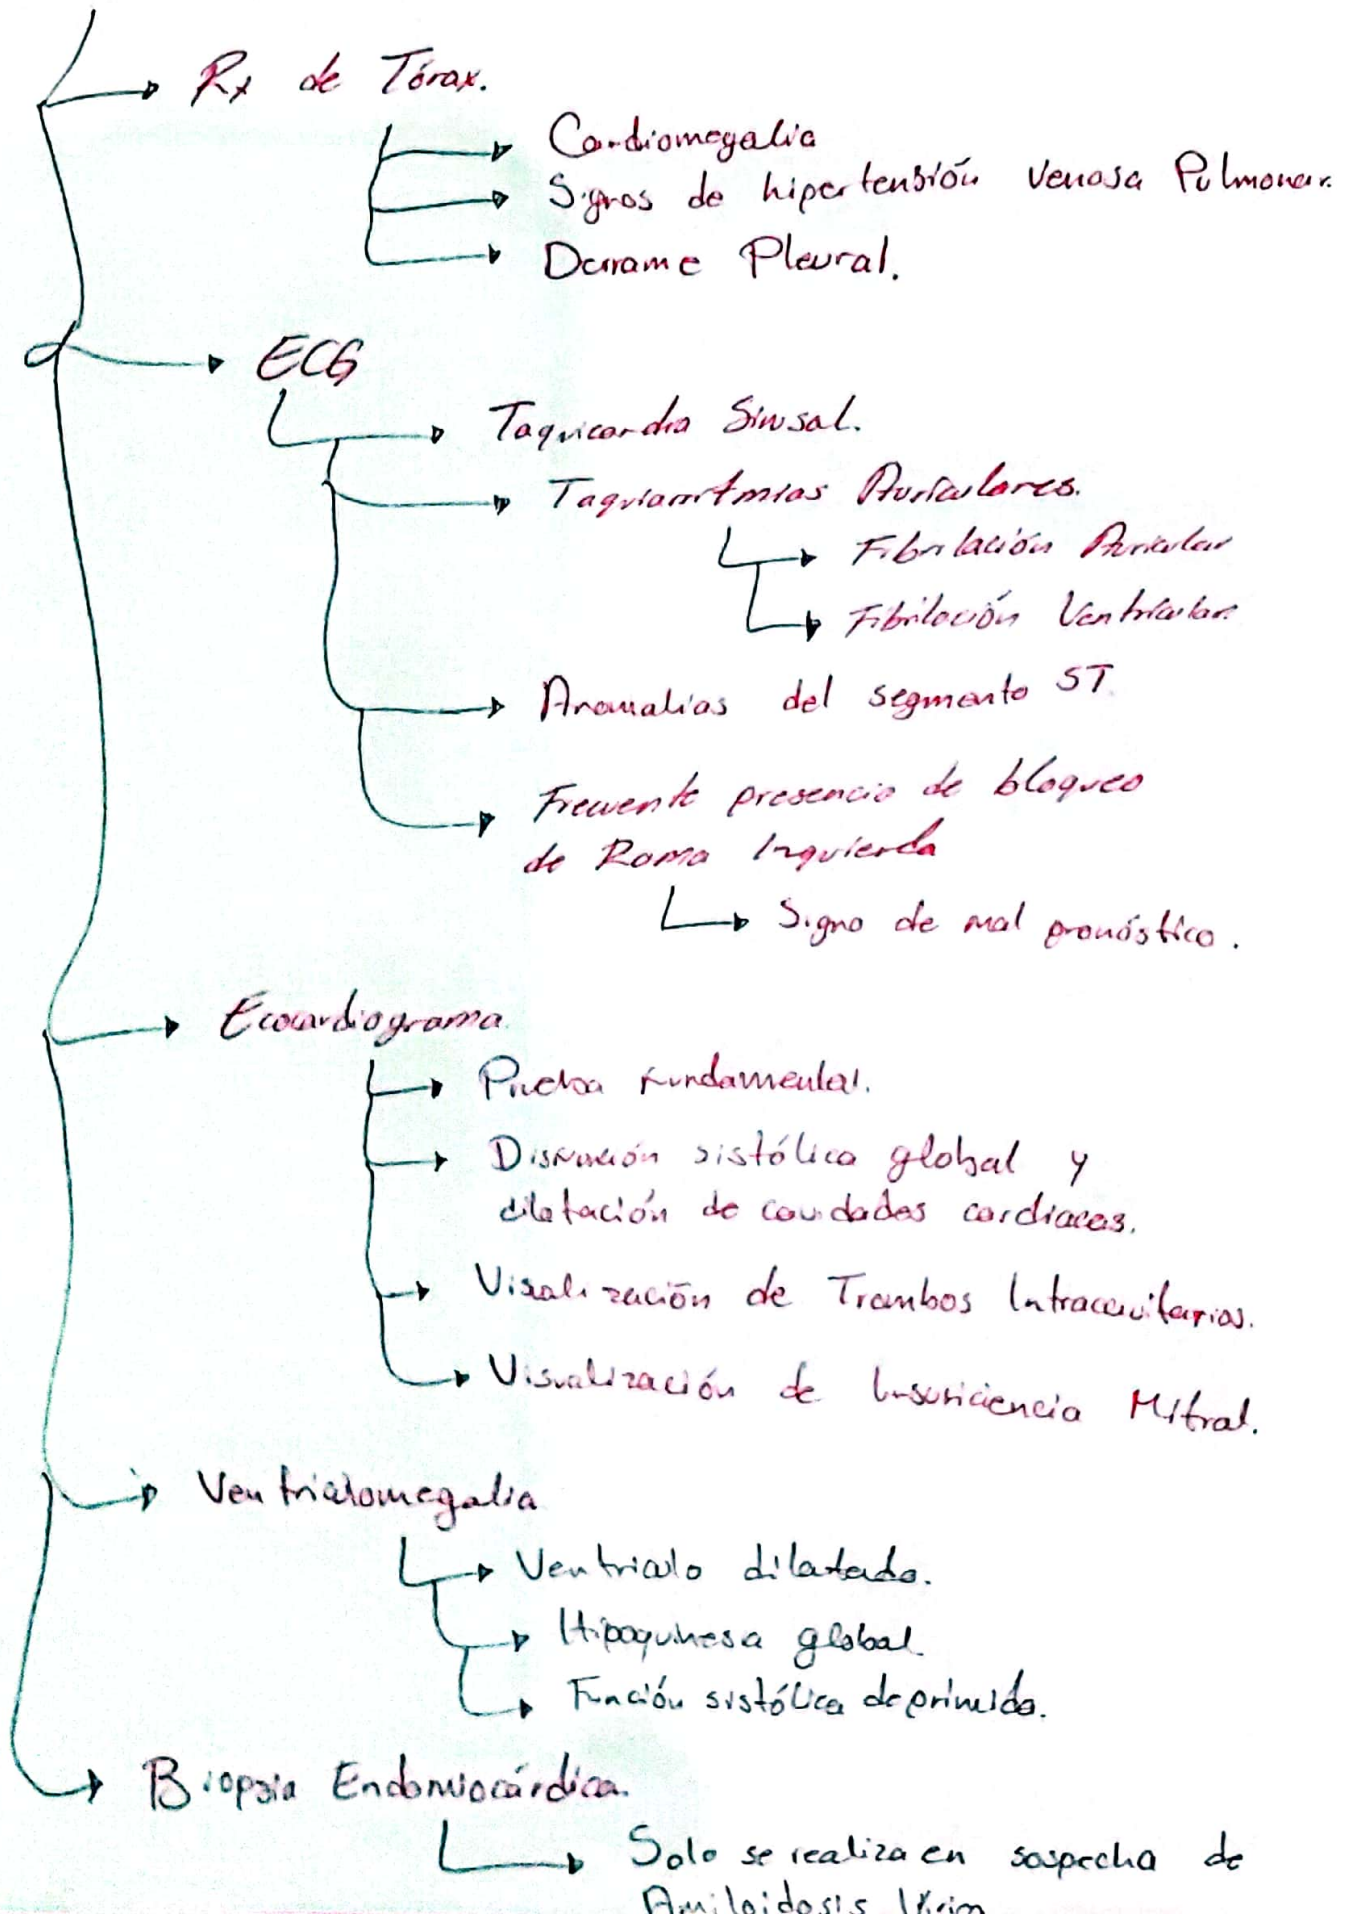 Rx de Tórax.
Cardiomegalia
Signos de hipertensión venosa Pulmonar.
Derrame Pleural.
ECG
Taquicardia Sinusal.
Taquiarritmias Auriculares.
Fibrilación Auricular
Fibrilación Ventricular.
Anomalias del segmento ST.
Frecuente presencia de bloqueo
de Rama Izquierda
Signo de mal pronóstico.
Ecocardiograma.
Prueba fundamental.
Disfunción sistólica global y
dilatación de cavidades cardiacas.
Visalización de Trombos Intracavitarios.
Visualización de Insuficiencia Mitral.
Ventriculomegalia
Ventriculo dilatado.
Hipoquinesa global
Función sistólica deprimida.
Biopsia Endomiocárdica.
Solo se realiza en sospecha de
Amiloidosis